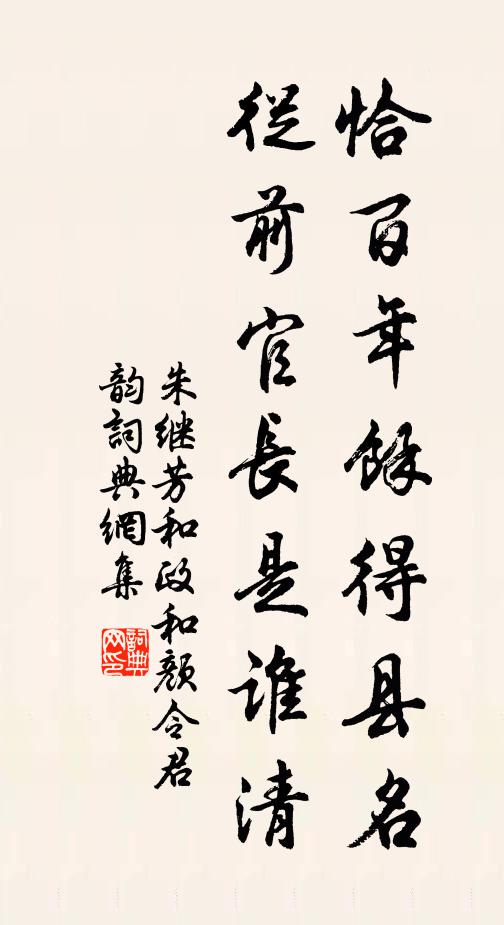 恰百年餘得县名
従前官長是谁清
朱继芳和政和颜令君
韵詞典網集
詞典网印